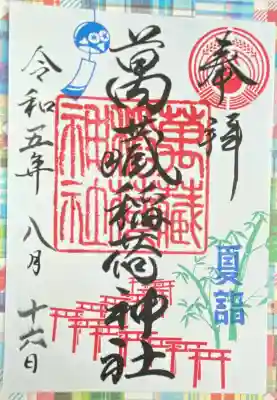 奉拝
萬蔵稲荷神社
萬蔵
稲荷
神社
夏詣
令和五年 八月 十六日